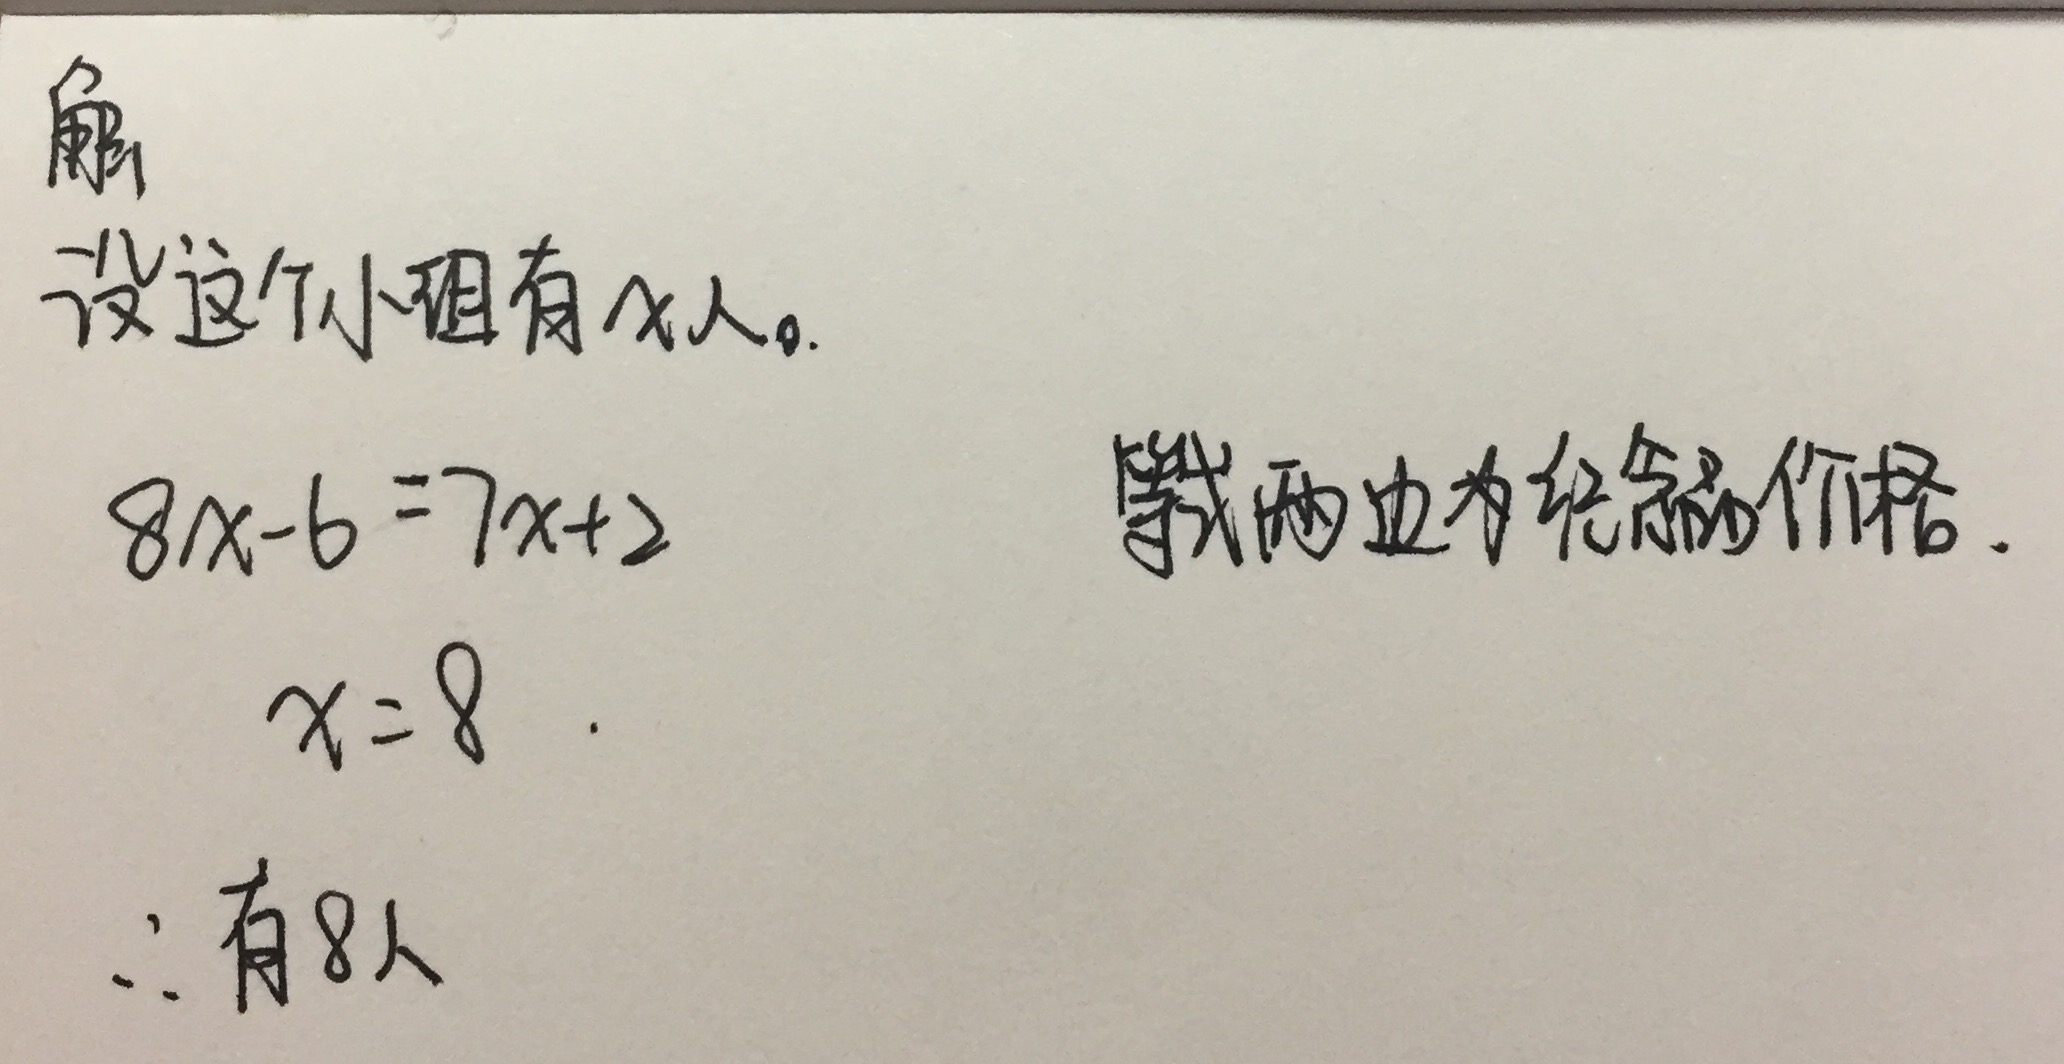 解
设这个小组有x人。.
8x-6=7x+2
等式两边为纪念品价格.
x=8 .
∴有8人